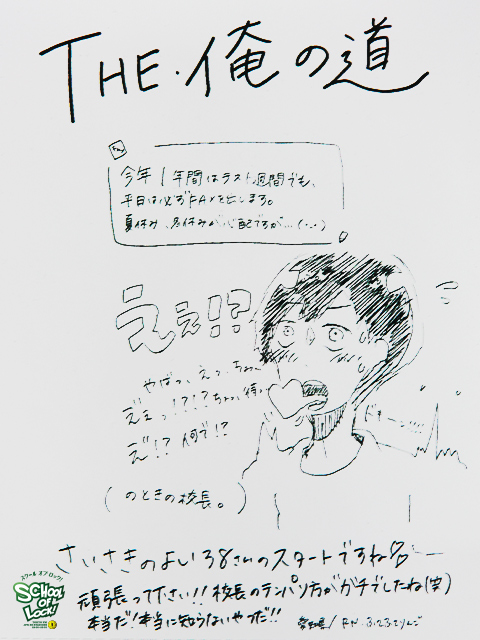 THE・俺の道
今年1年間はラスト週間でも、
平日は必ずFAXを出します。
夏休み、冬休みが心配ですが…(･-･)
ええ!!?
やばっ、えっ、ちょ、
え゛ぇっ!?!?ちょっ、待っ
え゛!?何で!?
ドキーン!!!!
(のときの校長。)
さいさきのよい38さんのスタートですね
頑張って下さい!!校長のテンパり方がガチでしたね(笑)
本当だ!本当に知らないやつだ!!
スクール オブ ロック!
SCHOOL OF LOCK!